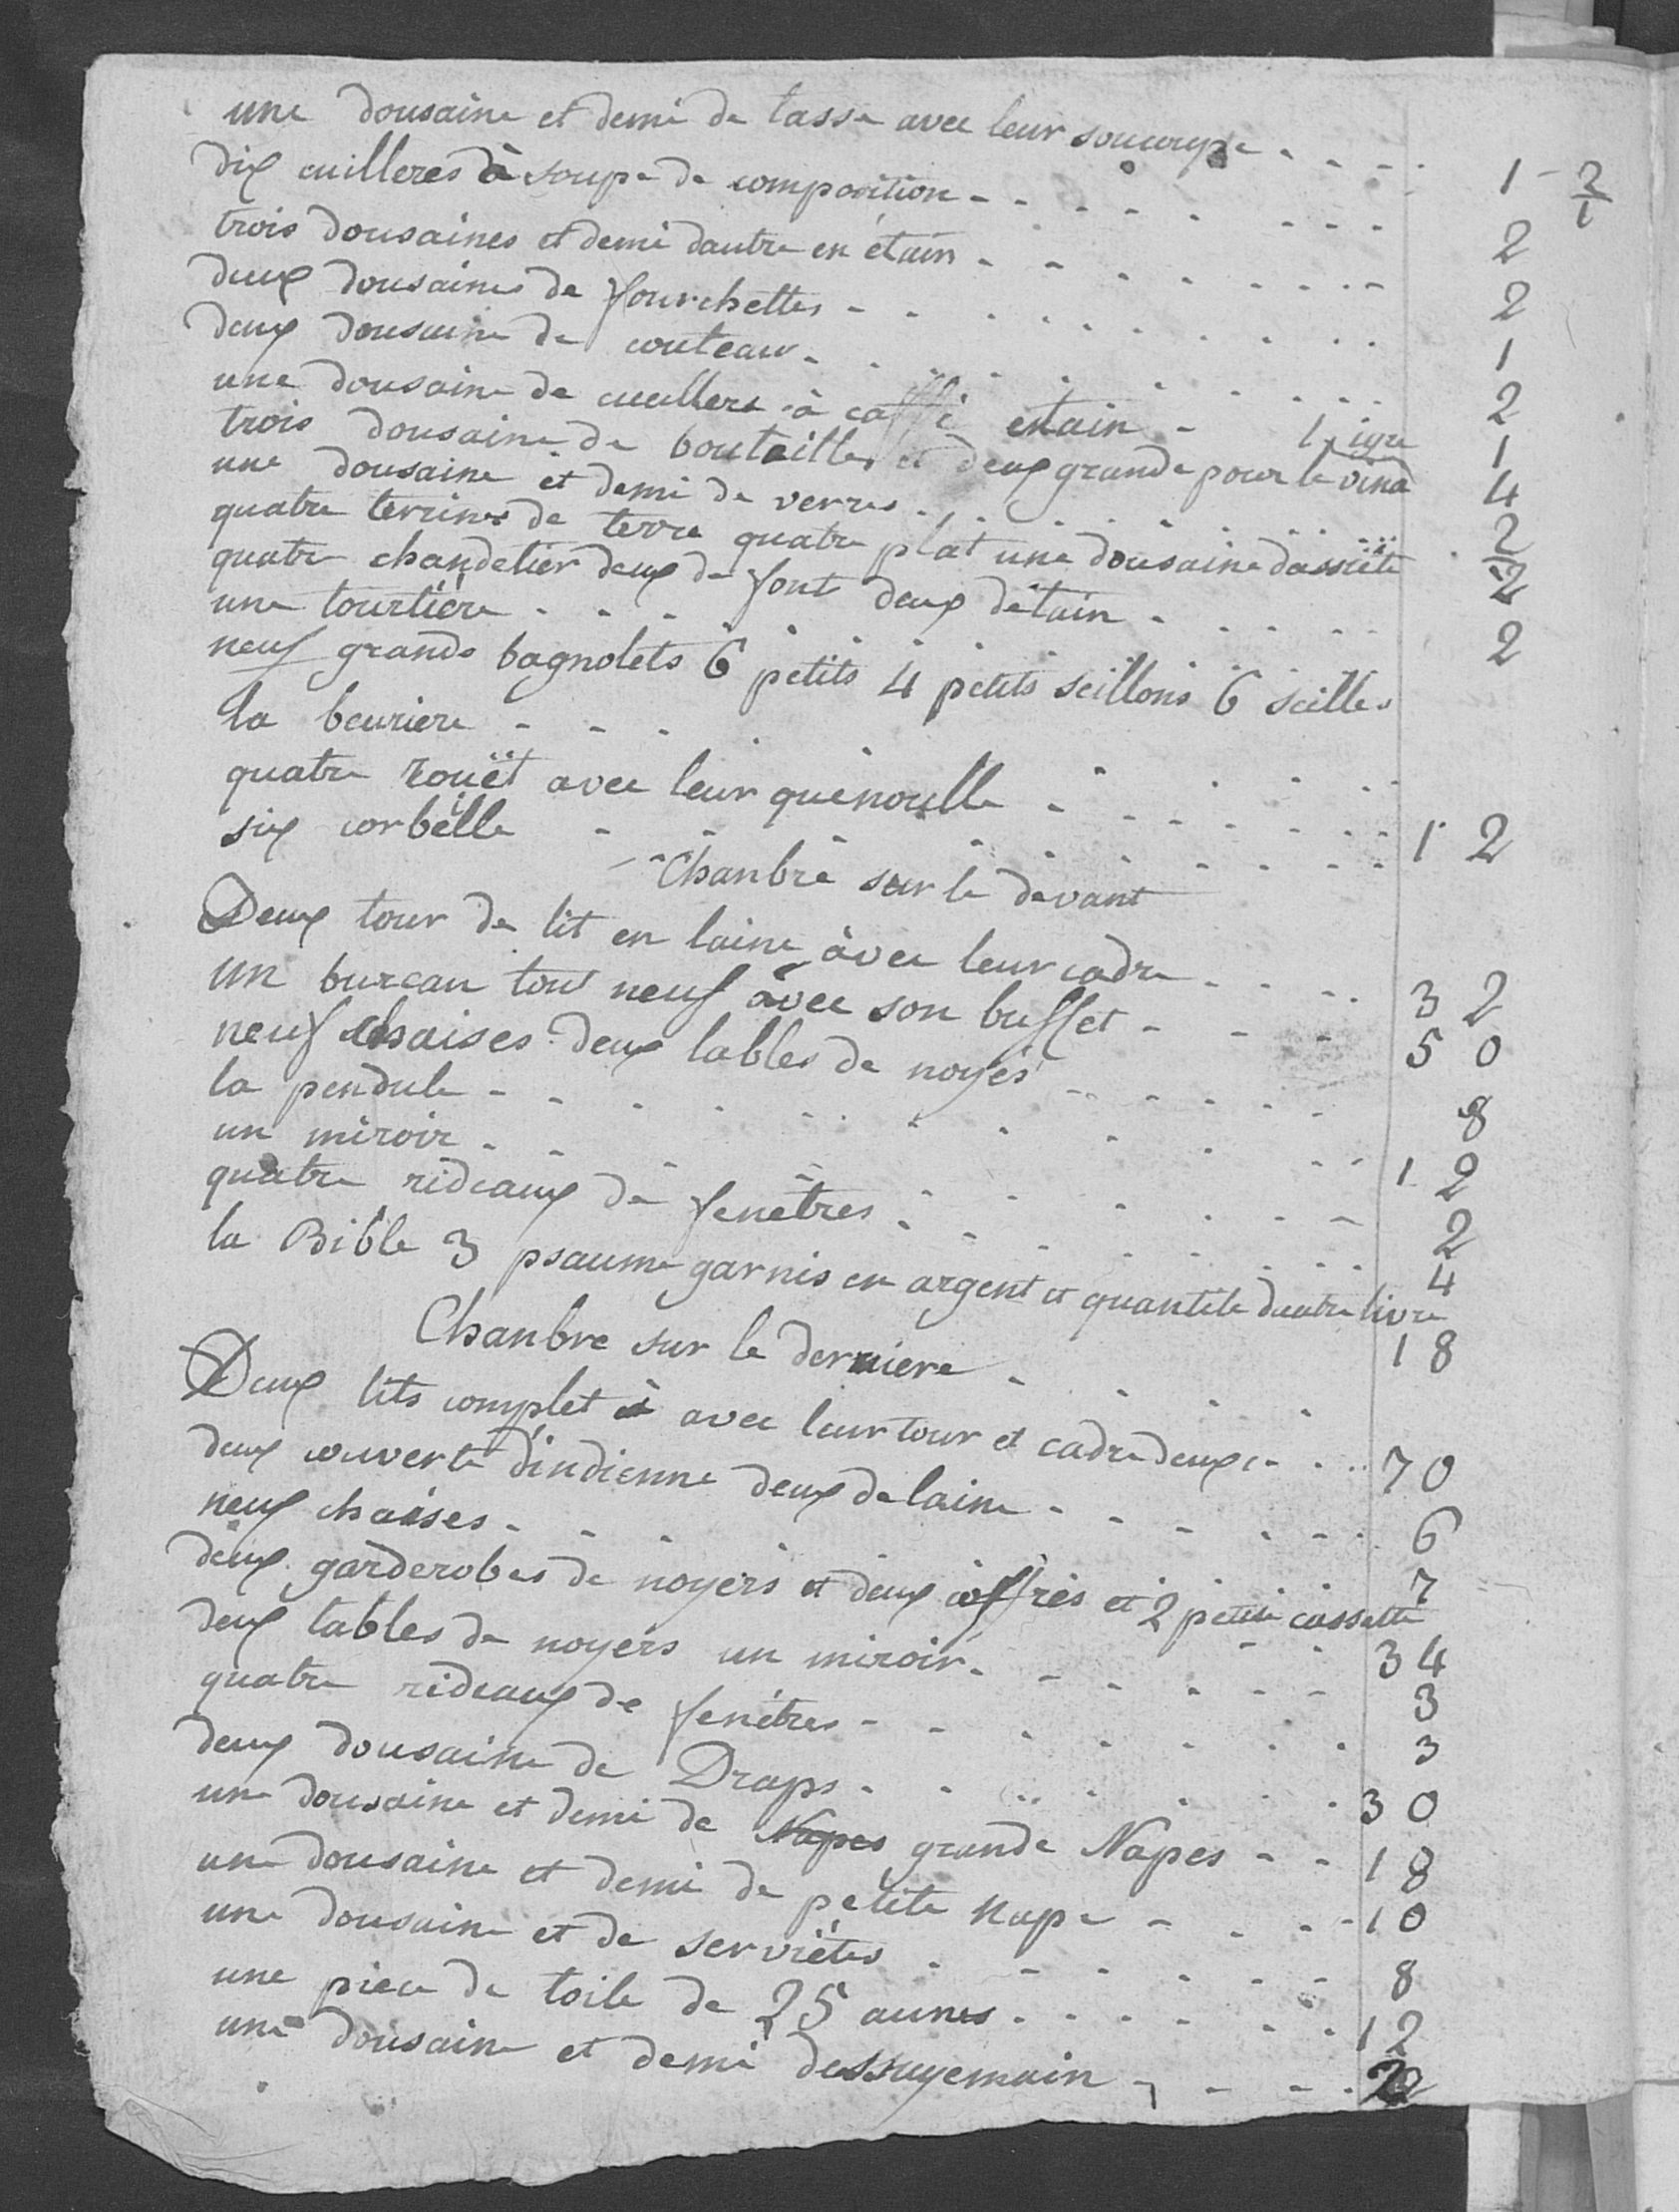 une dousaine et demi de tasse avec leur soucoupe - - - - 1 - 2/1
dix cuilleres à soupe de composition - - - - - - - - 2
trois dousaines et demi dautre en étain - - - - - - - 2
deux dousaines de fourchettes - - - - - - - - - 1
deux dousaine de couteau - - - - - - - - - 2
une dousaine de cuellers à caffé estain - 1
trois dousaine de bouteilles et deux grande pour le vinaigre 4
une dousaine et demi de verres - - - - - - 2
quatre terrines de terre quatre plat une dousaine dassiete 2
quatre chandelier deux de font deux détain - - - - - 2
une tourtière - - - - - - - -
neuf grands bagnolets 6 petits 4 petits seillons 6 seilles
la beuriere - - - - - - - -
quatre rouët avec leur quenoulle - - - - - - - 12
six corbëlle - - - - - - - -
Chanbre sur le devant
Deux tour de lit en laine àvec leur cadre - - - - 32
un bureau tout neuf àvec son buffet - - - 50
neuf chaises deux tables de noyés - - - - - - 8
la pendule - - - - - - - - - - 12
un miroir - - - - - - - - 2
quatre rideaux de fenêtres - - - - - - 4
la Bible 3 psaume garnis en argent et quantité dautre livre 18
Chanbre sur le derniere - - - -
Deux lits complet à avec leur tour et cadre deux - - - 70
deux couverte d'indienne deux de laine - - - - - - 6
neuf chaises - - - - - - - 7
deux garderobes de noyérs et deux coffres et 2 petite cassette 34
deux tables de noyérs un miroir - - - - - - 3
quatre rideaux de fenêtres - - - - - - - 3
deux dousaine de Draps - - - - - - - 30
une dousaine et demi de Napes grande Napes - - 18
une dousaine et demi de petite Nape - - - - 10
une dousaine et de serviétes - - - - - - 8
une piece de toile de 25 aunes - - - - - - 12
une dousaine et demi dessuyemain - - - -